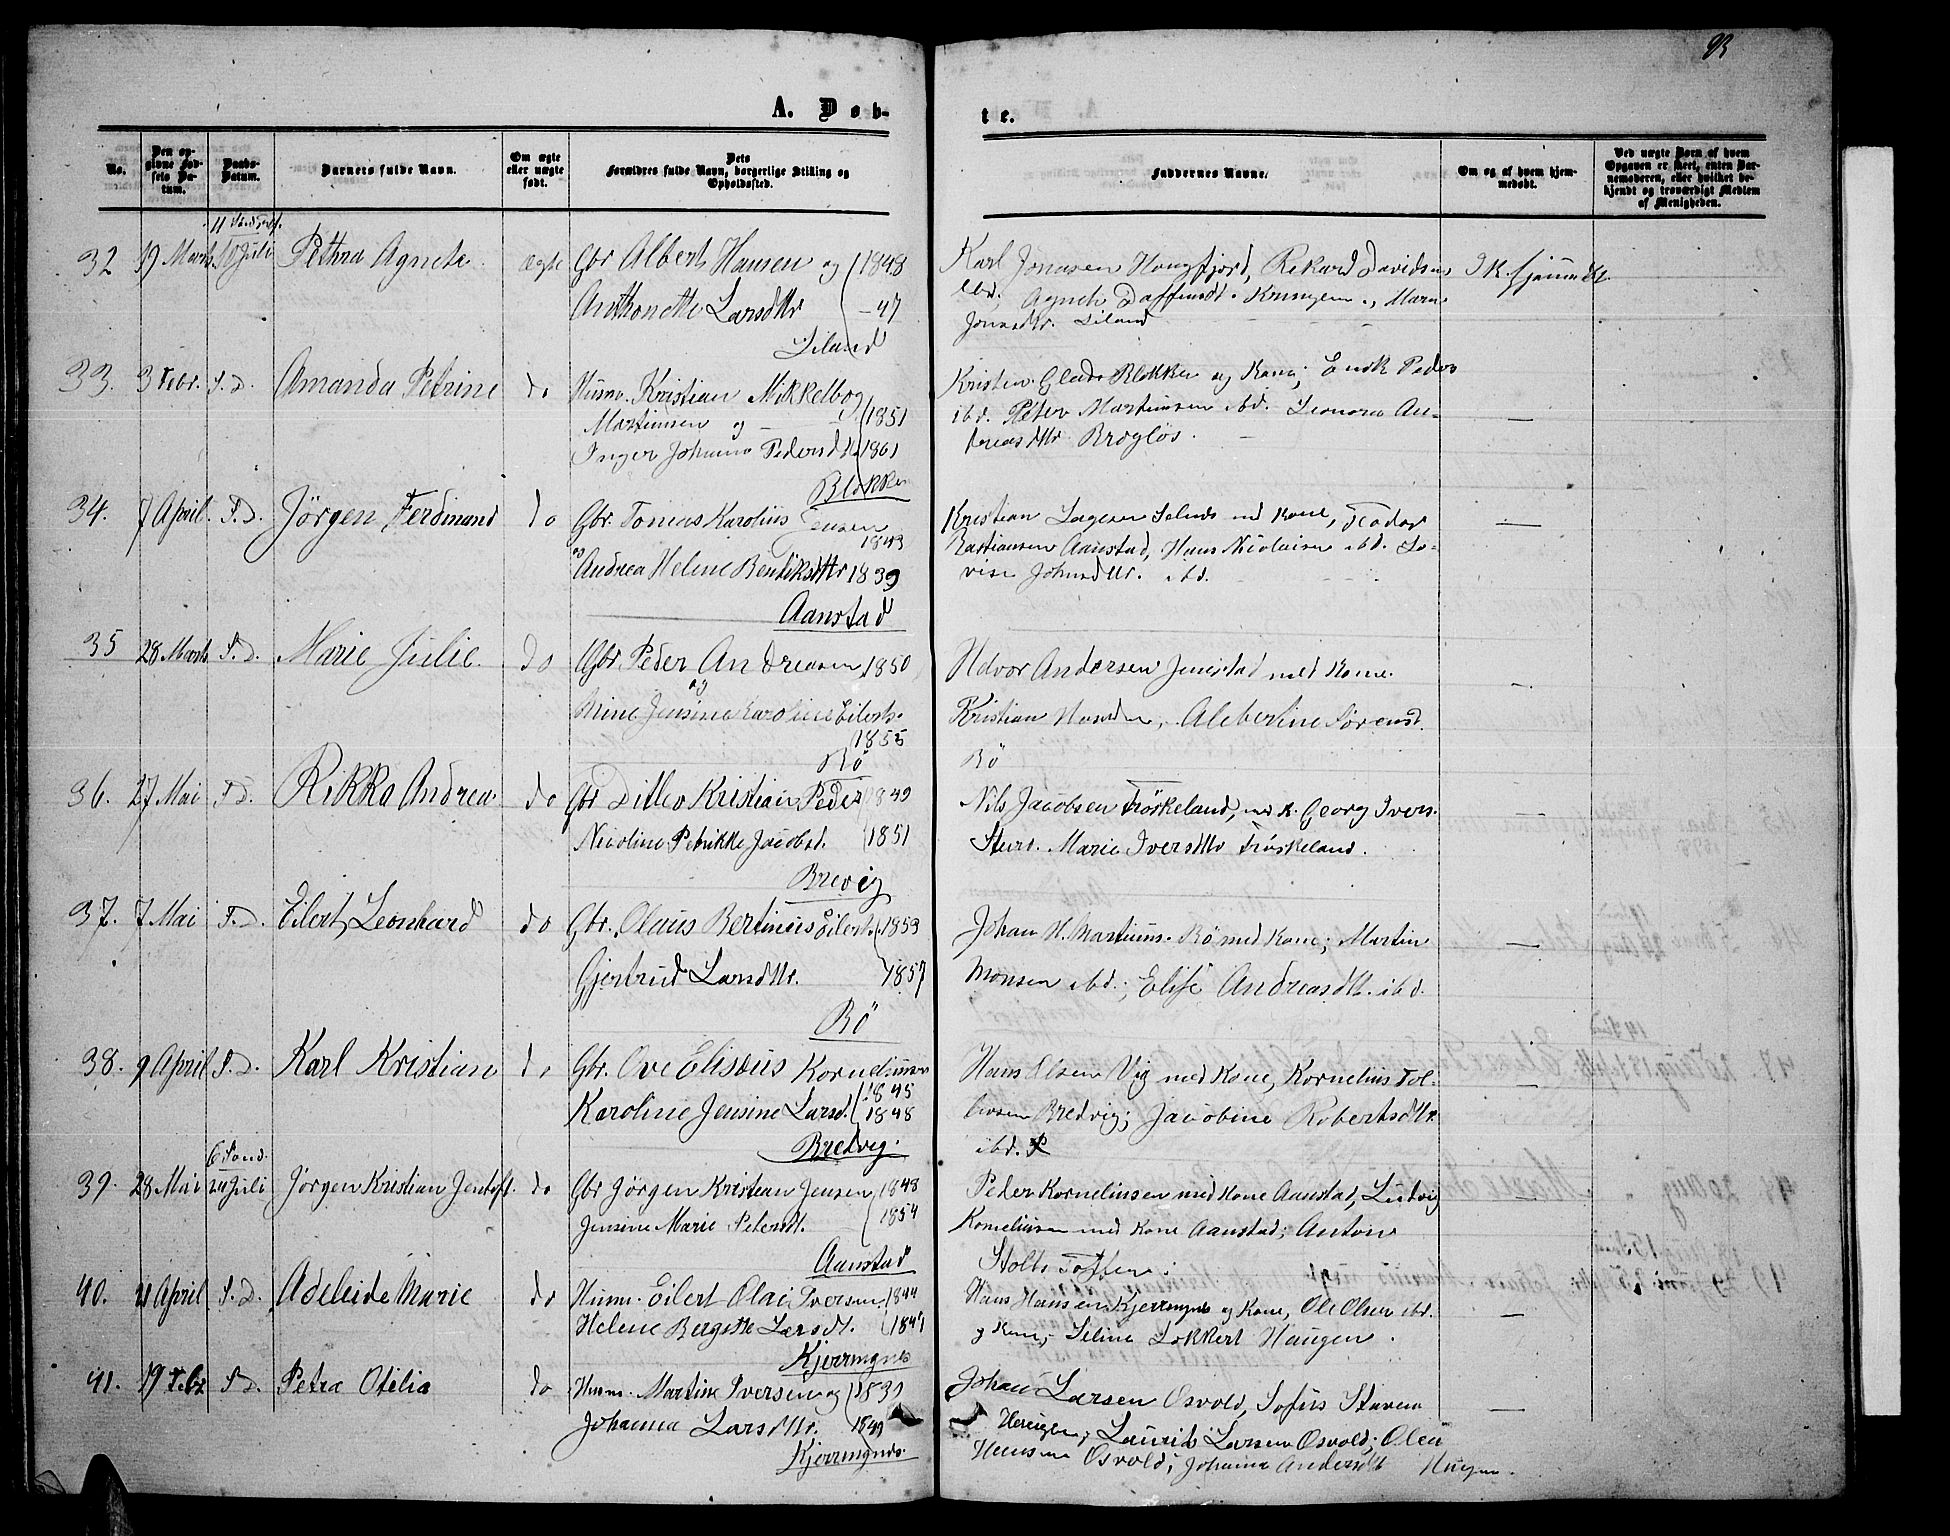 93
A. Døb-
te.
No.
Den op-
givne Fød-
sels Da-
tum.
Daabs-
Datum.
Barnets fulde Navn.
Om ægte
eller uægte
født.
Dets
Forældres fulde Navn, borgerlige Stilling og
Opholdssted.
Faddernes Navne.
Om og af hvem hjem-
medøbt.
Ved uægte Børn af hvem
Opgaven er skeet, enten Bar-
nemoderen, eller hvilket be-
kjendt og troværdigt Medlem
af Menigheden.
32 19 Marts 10 Juli Pethra Agnete ægte Gbr Albert Hansen og 1848
Anthonette Larsdtr -47
Liland
Karl Jonasen Haugfjord, Rikard Davidsen I K. hjemmedbt.
ibd. Agnete
Jonasdtr. Liland
33. 3 Febr. S. D. Amanda Petrine do Husm. Kristian Mikkelbog
Martinsen og 1851
Inger Johanna Pedersdtr 1861
Blokken
Kristen Blokken og Kone; Enok Peders
ibd. Peter Martinsen ibd. Leonora An-
dreasdtr
34. 7 April. S. D. Jörgen Ferdinand do Gbr. Tomas Karolius Jensen
1843
og Andrea Helene Bentiksdtr 1839
Aanstad
Kristian med Kone, Teodor
Bastiansen Aanstad, Hans Nicolaisen ibd. Lo-
vise Johnsdtr. ibd.
35 28 Marts S. D. Marie Julie do Gbr Peder Andreasen 1850
og
Mine Jensine Karoline Eilerts.
1855
Bö
Halvor Andersen Jennestad med Kone.
Kristian Alebertine Sörensd.
Bö
36. 27 Mai S. D. Rikka Andrea do Gbr Ditlev Kristian Peder 1849
Nicoline Petrikke Jacobsd. 1851
Brevig
Nils Jacobsen Fröskeland, med K. Georg Ivers.
Marie Iversdtr Fröskeland.
37. 7 Mai S. D. Eilert Leonhard do Gbr. Olaus Bertinius Eilerts. 1853
Gjertrud Larsdtr. 1857
Bö
Johan H. Martinus. Bö med Kone; Martin
Monsen ibd.; Elise Andreasdtr. ibd.
38. 9 April S. D. Karl Kristian do Gbr. Ove Elisæus Korneliusen
1845
Karoline Jensine Larsd. 1848
Bredvig.
Hans Olsen Vig med Kone, Kornelius Tol-
levsen Bredvig; Jacobine Robertsdtr
ibd.
39. 28 Mai 6 Sond. Juli Jörgen Kristian Jentoft. do Gbr Jörgen Kristian Jensen 1848
Jensine Marie Petersdt. 1854
Aanstad
Peder Korneliusen med Kone Aanstad, Ludvig
Korneliusen med Kone Aanstad; Anton
40. 21 April S. D. Adeleide Marie do Husm. Eilert Olai Iversen 1844
Helene Bergitte Larsdt. 1847
Kjerringnes
Hans Hansen Kjerringnes og Kone, Ole Olsen ibd.
og Kone; Seline Lokkert Haugen.
41. 19 Febr S. D. Petra Otilia do Husm. Martin Iversen og 1839
Johanna Larsdtr. 1849
Kjerringnes.
Johan Larsen Osvold, Sofus
Laurits Larsen Osvold; Olea
Hansen Osvold; Johanna Andersdt Haugen.